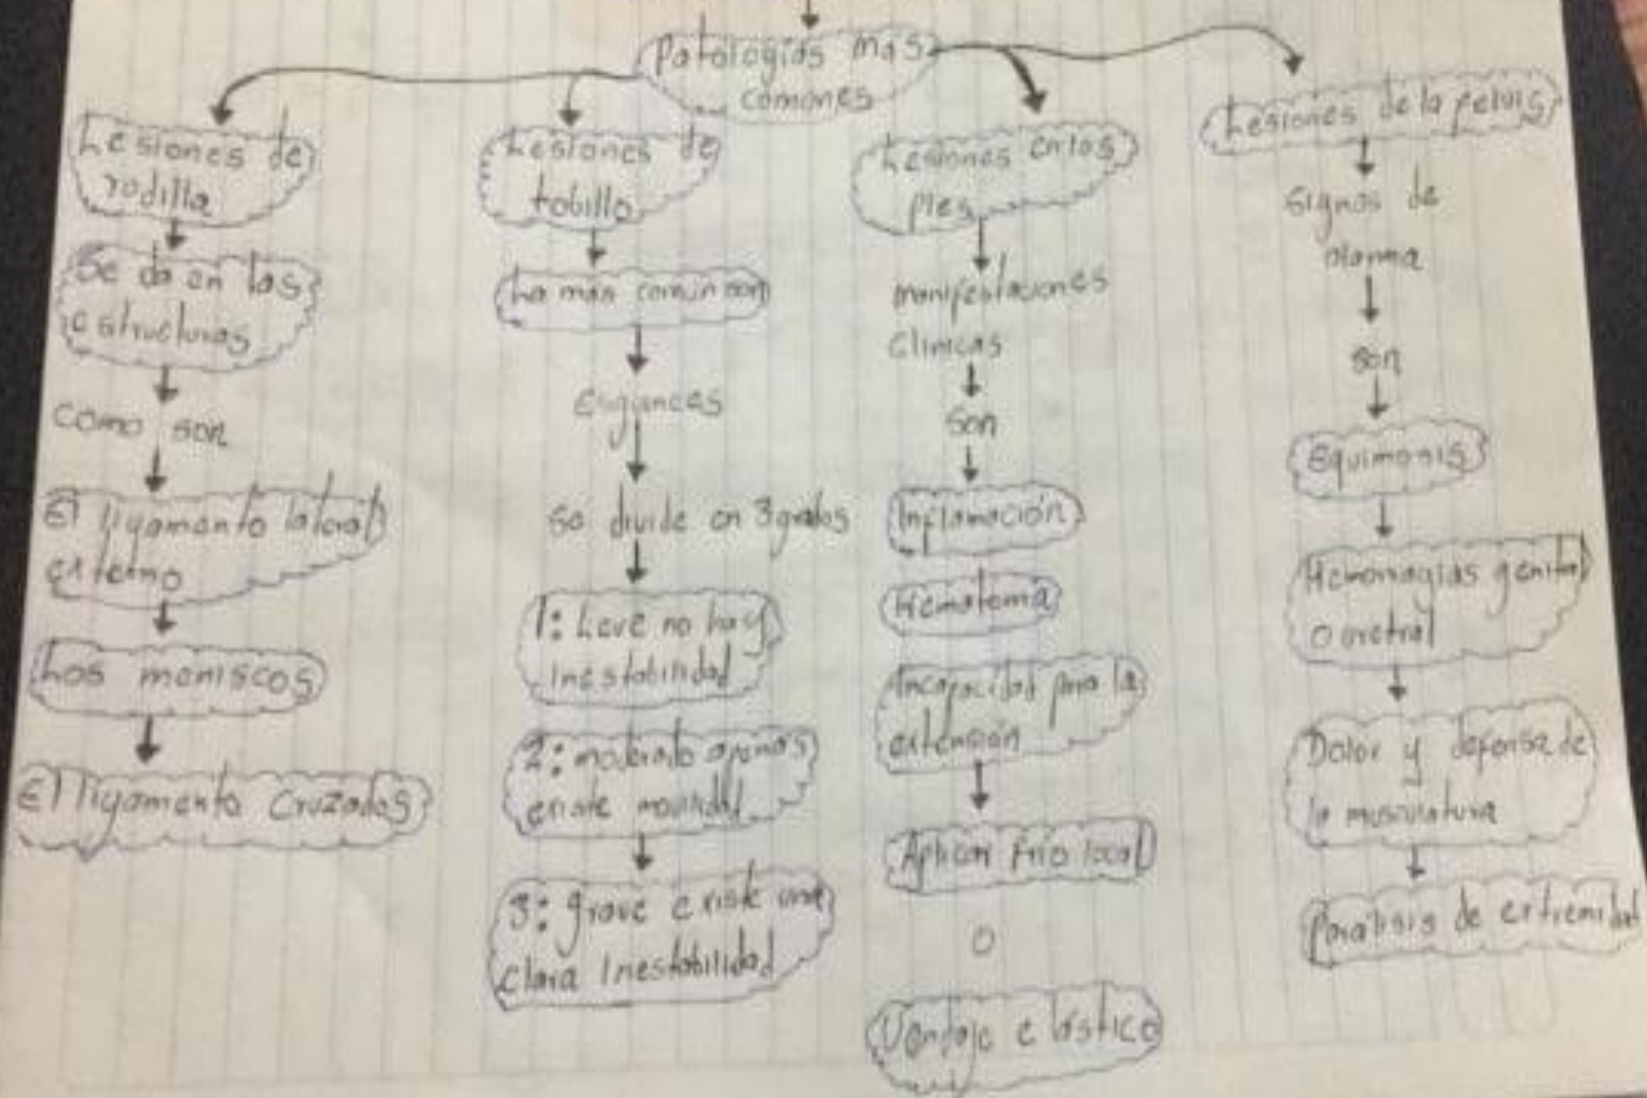 Patologías mas
comones
Lesiones de
rodilla
Se da en las
estructuras
como son
El ligamento lateral
externo
Los meniscos
El ligamento cruzados
Lesiones de
tobillo
La más común son
Esguinces
se divide en 3 grados
1: Leve no hay
inestabilidad
2: moderado apenas
existe movilidad
3: grave existe una
clara inestabilidad
Lesiones en los
pies
manifestaciones
Clinicas
son
Inflamación
Hematoma
Incapacidad para la
extensión
Aplicar frío local
O
Vendaje elástico
Lesiones de la pelvis
signos de
alarma
son
Equimosis
Hemorragias genital
o uretral
Dolor y defensa de
la musculatura
Parálisis de extremidad